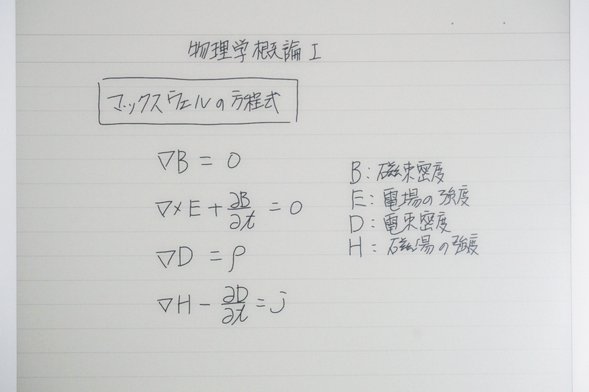 物理学概論I
マックスウェルの方程式
∇B = 0
∇×E + ∂B/∂t = 0
∇D = ρ
∇H - ∂D/∂t = j
B: 磁束密度
E: 電場の強度
D: 電束密度
H: 磁場の強度